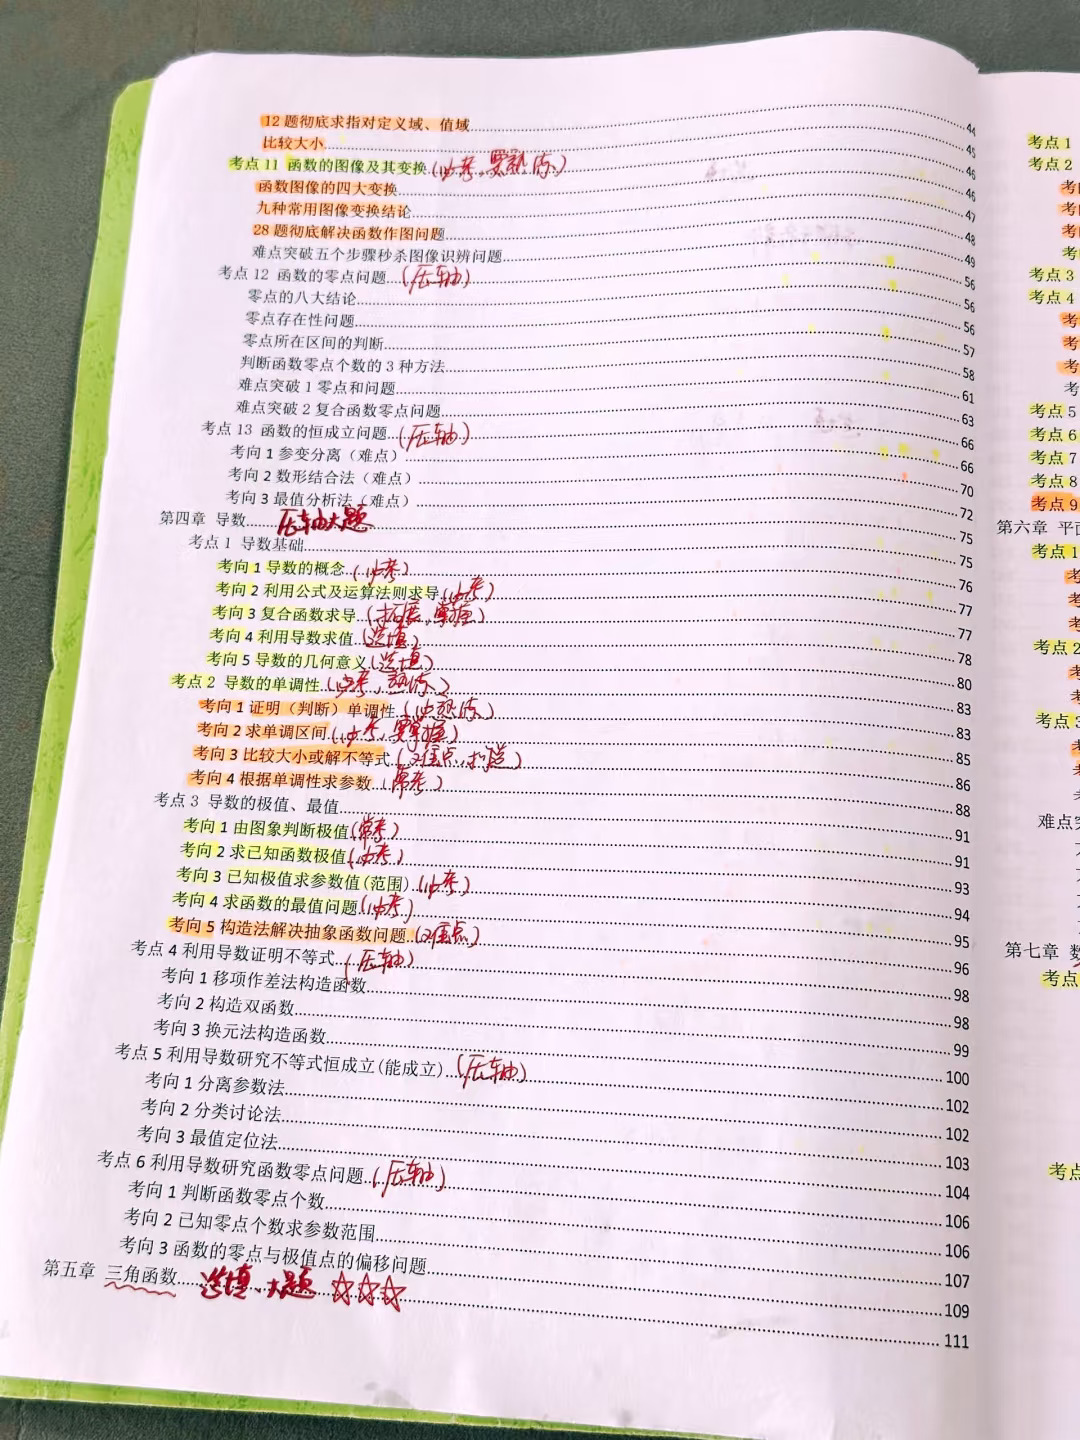 12题彻底求指对定义域、值域 44
比较大小 45
考点11 函数的图像及其变换 (必考,要熟练) 46
函数图像的四大变换 46
九种常用图像变换结论 47
28题彻底解决函数作图问题 48
难点突破五个步骤秒杀图像识辨问题 49
考点12 函数的零点问题 (压轴) 56
零点的八大结论 56
零点存在性问题 56
零点所在区间的判断 57
判断函数零点个数的3种方法 58
难点突破1零点和问题 61
难点突破2复合函数零点问题 63
考点13 函数的恒成立问题 (压轴) 66
考向1参变分离(难点) 66
考向2数形结合法(难点) 70
考向3最值分析法(难点) 72
第四章 导数 压轴大题 75
考点1 导数基础 75
考向1导数的概念 (必考) 76
考向2利用公式及运算法则求导 (必考) 77
考向3复合函数求导 (拓展,掌握) 77
考向4利用导数求值 (选填) 78
考向5导数的几何意义 (选填) 80
考点2 导数的单调性 (必考,熟练) 83
考向1证明(判断)单调性 (必熟练) 83
考向2求单调区间 (必考,要掌握) 85
考向3比较大小或解不等式 86
考向4根据单调性求参数 (常考) 88
考点3 导数的极值、最值 91
考向1由图象判断极值 (常考) 91
考向2求已知函数极值 (必考) 93
考向3已知极值求参数值(范围) (必考) 94
考向4求函数的最值问题 (必考) 95
考向5构造法解决抽象函数问题 (难点) 96
考点4利用导数证明不等式 (压轴) 98
考向1移项作差法构造函数 98
考向2构造双函数 99
考向3换元法构造函数 100
考点5利用导数研究不等式恒成立(能成立) (压轴) 102
考向1分离参数法 102
考向2分类讨论法 103
考向3最值定位法 104
考点6利用导数研究函数零点问题 (压轴) 106
考向1判断函数零点个数 106
考向2已知零点个数求参数范围 107
考向3函数的零点与极值点的偏移问题 109
第五章 三角函数 选填、大题 ☆☆☆ 111
考点1
考点2
考点3
考点4
考点5
考点6
考点7
考点8
考点9
第六章
考点1
考点2
考点3
第七章
考点
考点